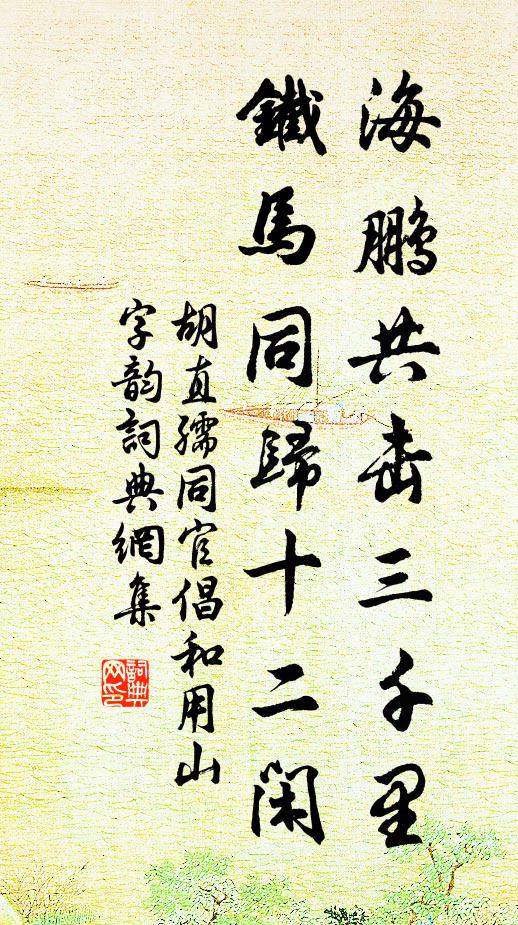 海鵬共击三千里
鐵馬同歸十二闲
胡直孺同官倡和用山
字韵詞典網集
詞典网印